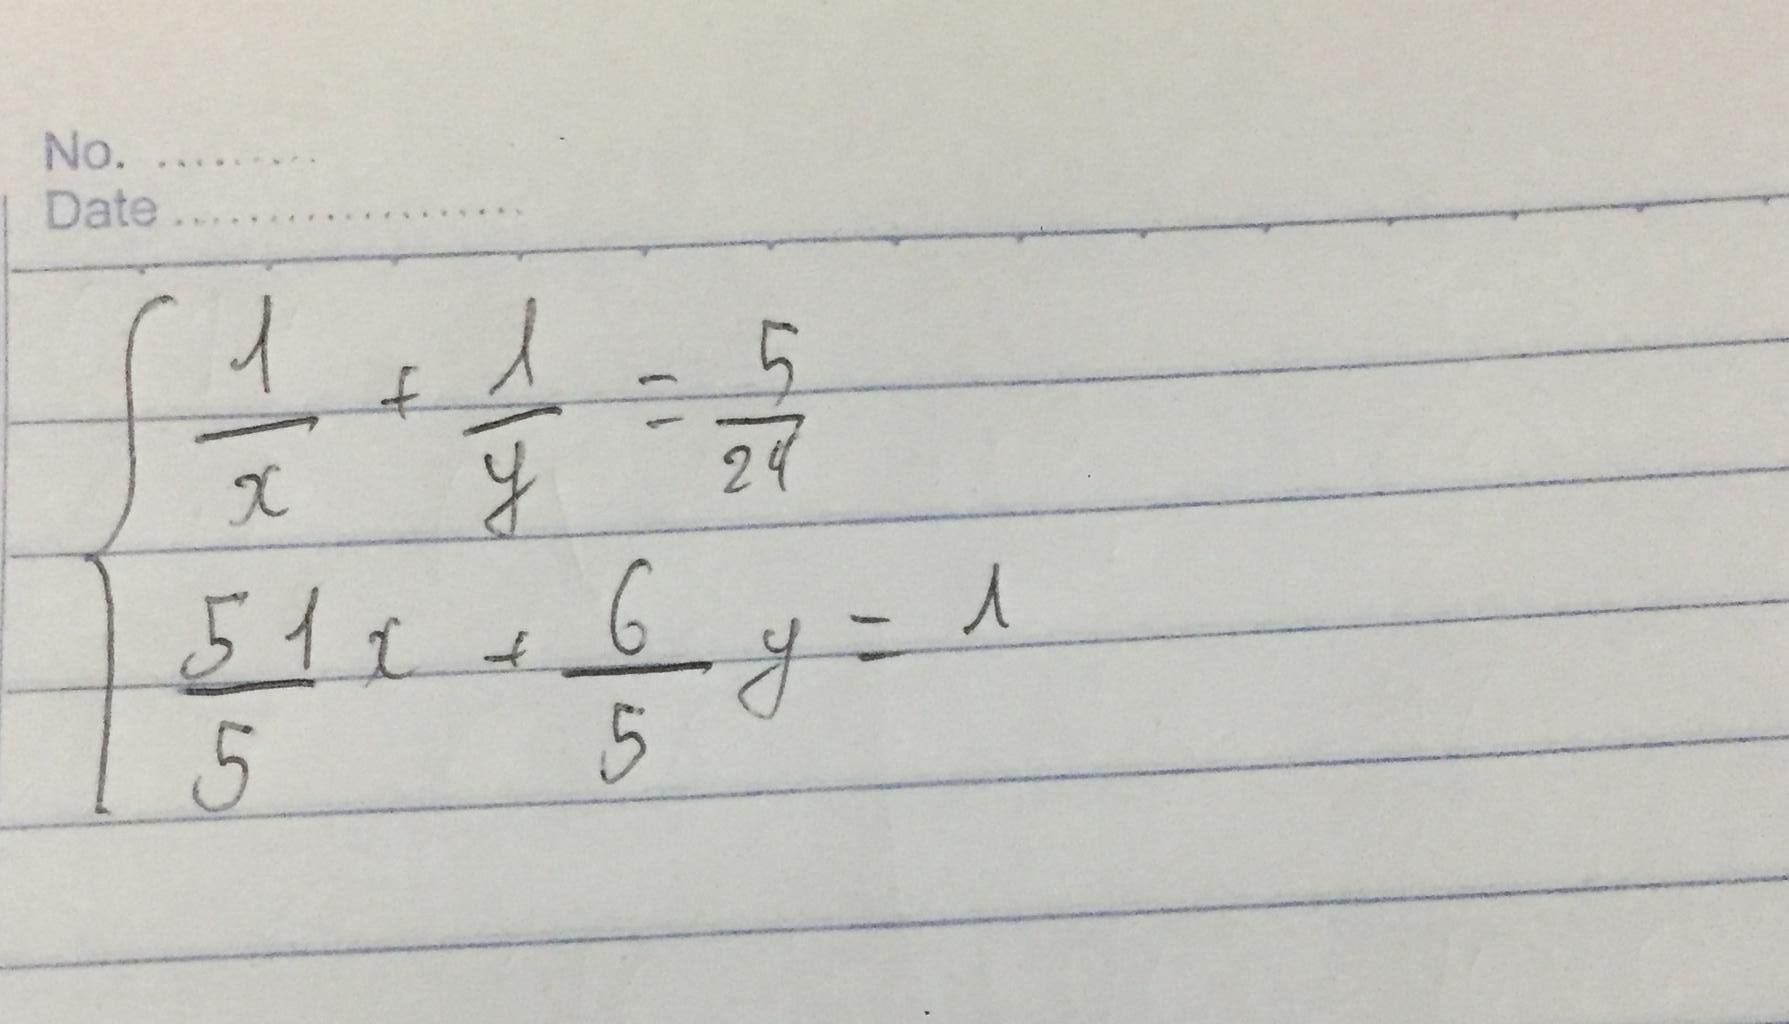 No. ..........
Date ....................
1/x + 1/y = 5/24
51/5 x + 6/5 y = 1